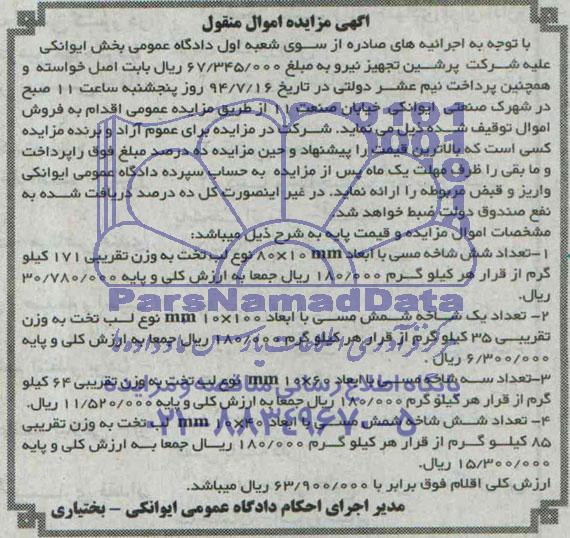 آگهی مزایده اموال منقول
با توجه به اجرائیه های صادره از سوی شعبه اول دادگاه عمومی بخش ایوانکی
علیه شرکت پرشین تجهیز نیرو به مبلغ ۶۷/۳۴۵/۰۰۰ ریال بابت اصل خواسته و
همچنین پرداخت نیم عشر دولتی در تاریخ ۹۴/۷/۱۶ روز پنجشنبه ساعت ۱۱ صبح
در شهرک صنعتی ایوانکی خیابان صنعت ۱۱ از طریق مزایده عمومی اقدام به فروش
اموال توقیف شده ذیل می نماید. شرکت در مزایده برای عموم آزاد و برنده مزایده
کسی است که بالاترین قیمت را پیشنهاد و حین مزایده ده درصد مبلغ فوق راپرداخت
و ما بقی را ظرف مهلت یک ماه پس از مزایده به حساب سپرده دادگاه عمومی ایوانکی
واریز و قبض مربوطه را ارائه نماید. در غیر اینصورت کل ده درصد دریافت شده به
نفع صندوق دولت ضبط خواهد شد.
مشخصات اموال مزایده و قیمت پایه به شرح ذیل میباشد:
۱-تعداد شش شاخه مسی با ابعاد ۸۰×۱۰ mm نوع لب تخت به وزن تقریبی ۱۷۱ کیلو
گرم از قرار هر کیلو گرم ۱۸۰/۰۰۰ ریال جمعا به ارزش کلی و پایه ۳۰/۷۸۰/۰۰۰
ریال.
ParsNamadData
۲- تعداد یک شاخه شمش مسی با ابعاد ۱۰×۱۰۰ mm نوع لب تخت به وزن
تقریبی ۳۵ کیلو گرم از قرار هر کیلو گرم ۱۸۰/۰۰۰ ریال جمعا به ارزش کلی و پایه
۶/۳۰۰/۰۰۰ ریال
۳-تعداد سه شاخه مسی با ابعاد ۱۰×۶۰ mm نوع لب تخت به وزن تقریبی ۶۴ کیلو
گرم از قرار هر کیلو گرم ۱۸۰/۰۰۰ ریال جمعا به ارزش کلی و پایه ۱۱/۵۲۰/۰۰۰ ریال.
۴- تعداد شش شاخه شمش مسی با ابعاد ۱۰×۴۰ mm لب تخت به وزن تقریبی
۸۵ کیلو گرم از قرار هر کیلو گرم ۱۸۰/۰۰۰ ریال جمعا به ارزش کلی و پایه
۱۵/۳۰۰/۰۰۰ ریال.
۰۲۱-۸۸۳۴۹۶۷۰-۵
ارزش کلی اقلام فوق برابر با ۶۳/۹۰۰/۰۰۰ ریال میباشد.
مدیر اجرای احکام دادگاه عمومی ایوانکی - بختیاری